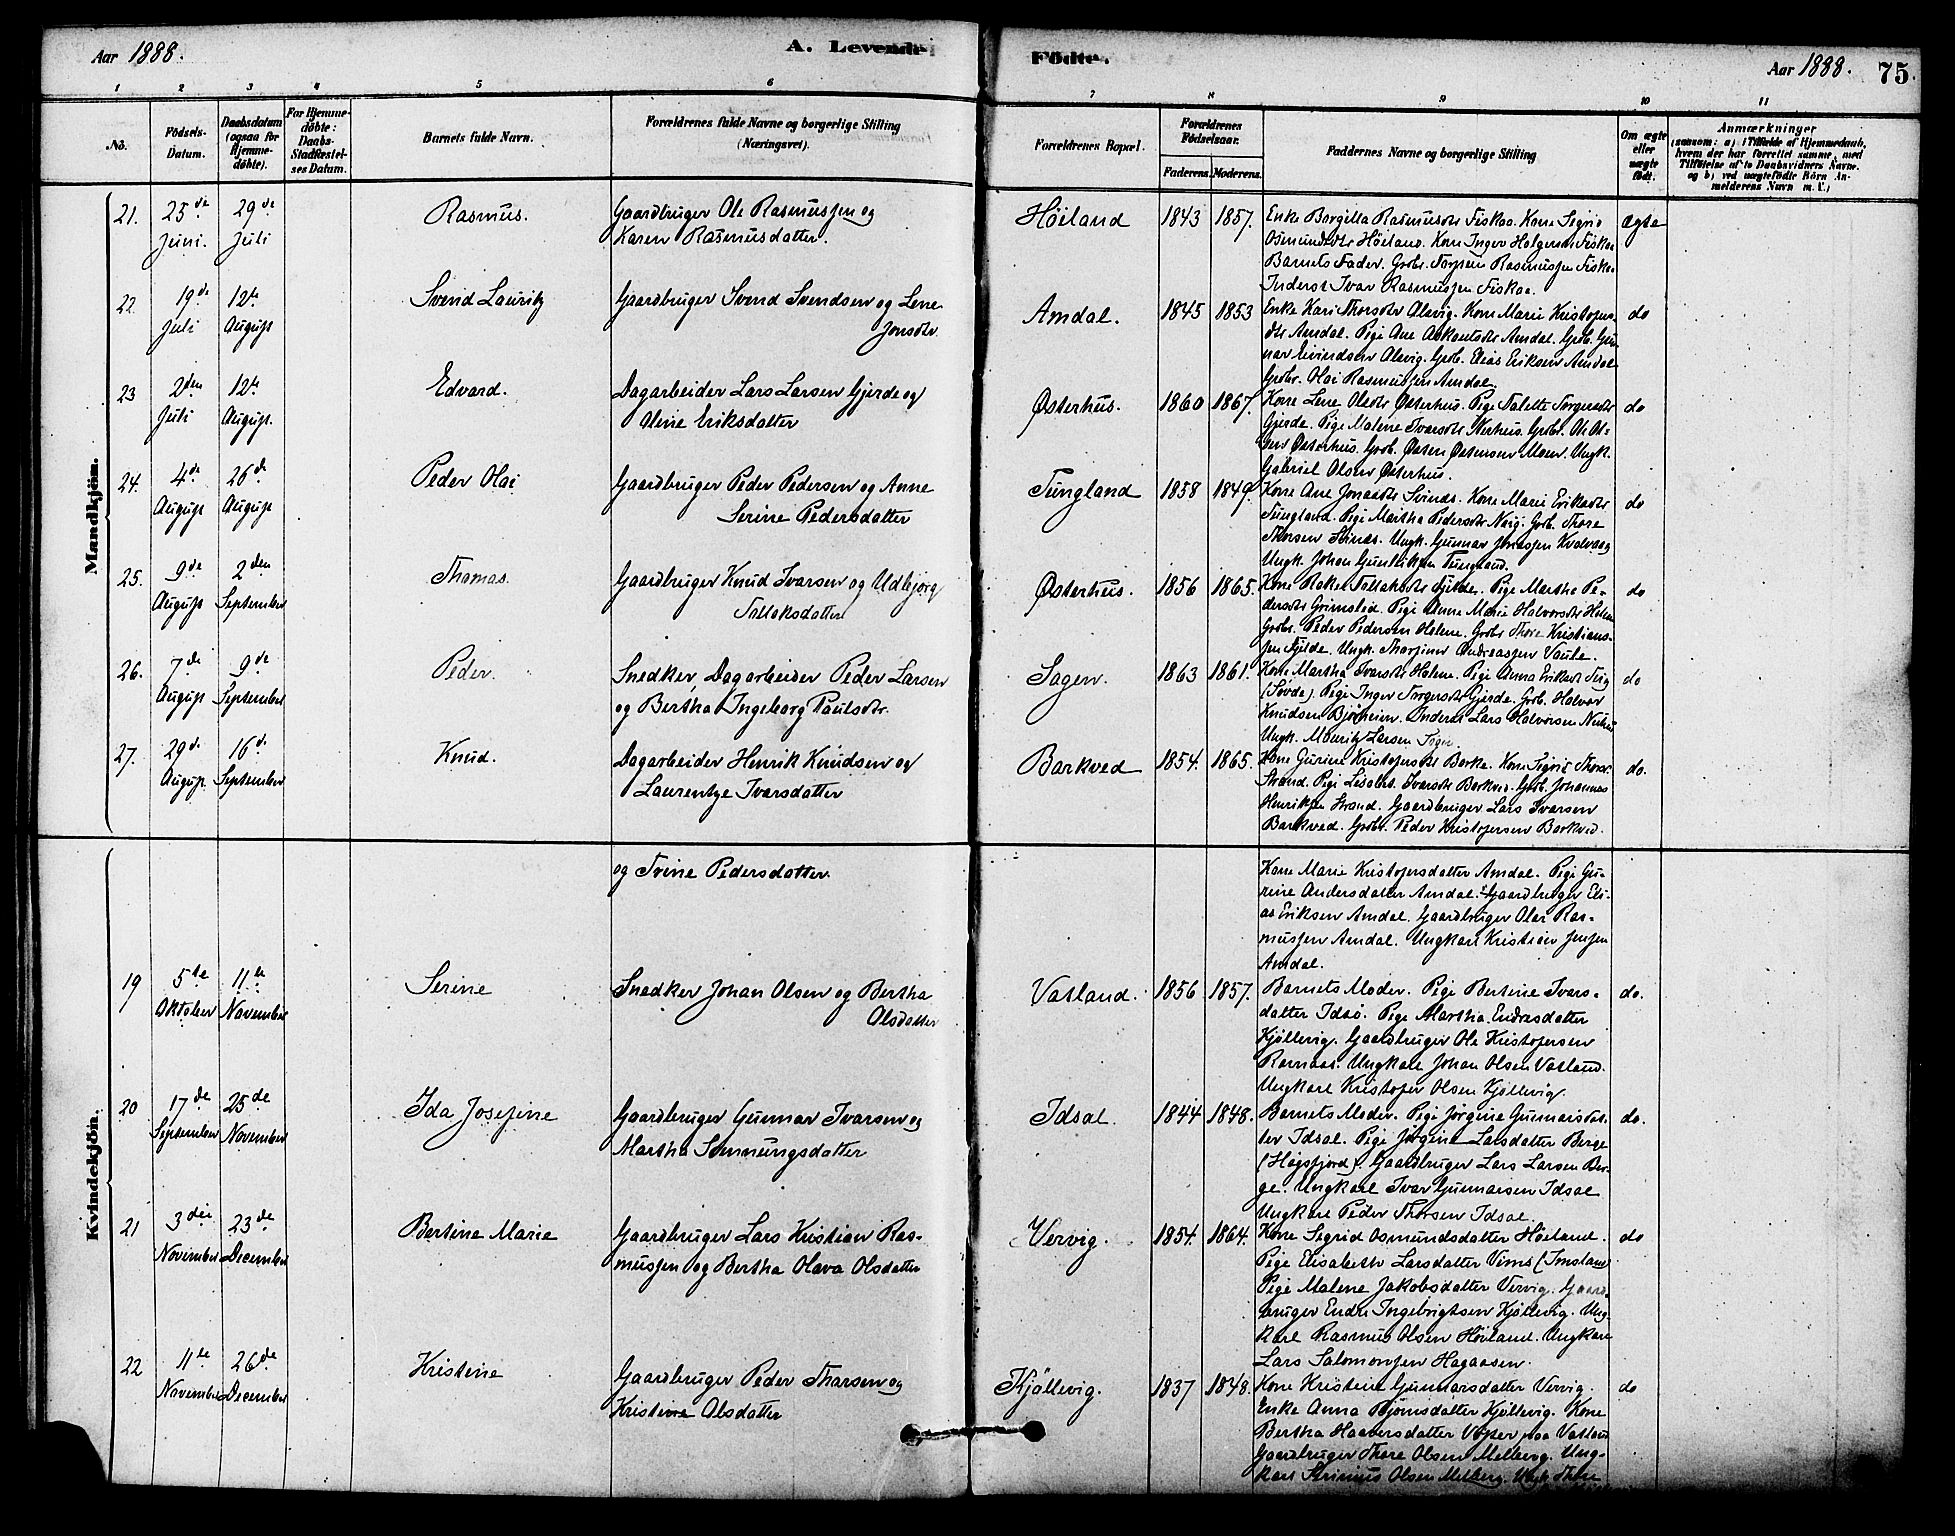 Aar 1888.
A. Levende
Födte.
Aar 1888.
75.
1 2 3 4 5 6 7 8 9 10 11
No.
Födsels-
Datum.
Daabsdatum
(ogsaa for
Hjemme-
døbte).
For Hjemme-
døbte:
Daabs-
Stadfæstel-
ses Datum.
Barnets fulde Navn.
Forældrenes fulde Navne og borgerlige Stilling
(Næringsvei).
Forældrenes Bopæl.
Forældrenes
Födselsaar.
Faderens. Moderens.
Faddernes Navne og borgerlige Stilling
Om ægte
eller
uægte
født.
Anmærkninger
(saasom: a) i Tilfælde af Hjemmedaab,
hvem der har forrettet samme, med
Tilføielse af to Daabsvidners Navne.
og b) ved uægtefödte Börn An-
melderens Navn m. V.)
Mandkjön.
21. 25de Juni. 29de Juli
Rasmus.
Gaardbruger Ole Rasmussen og
Karen Rasmusdatter.
Höiland 1843 1857.
Enke Borgilla Rasmusdtr Fiskaa. Kone Sigrid
Osmundsdtr Höiland. Kone Inger Holgersen Fiskaa
Barnets Fader. Grbr. Torsen Rasmussen Fiskaa
Inderst Ivar Rasmussen Fiskaa.
ægte
22. 19de Juli 12te August
Svend Lauritz
Gaardbruger Svend Svendsen og Lene
Jonsdtr.
Amdal. 1845 1853
Enke Kari Thorsdtr Alsvig. Kone Marie Kristofers-
dtr Amdal. Pige Ane Askautsdtr Amdal. Grb. Gun-
nar Eivindsen Alsvig. Grb. Elias Eriksen Amdal
Grbr. Olai Rasmussen Amdal.
do
23 2den Juli 12te August.
Edvard.
Dagarbeider Lars Larsen Gjerde og
Oline Eriksdatter
Østerhus. 1860 1867.
Kone Lene Olsdtr Østerhus. Pige Talette Torgersdtr
Gjerde. Pige Malene Ivarsdtr Nerhus. Grbr. Ole Ol-
sen Østerhus. Grb. Østen Østensen Moen. Ungk.
Gabriel Olsen Østerhus.
do
24. 4de August 26de August
Peder Olai
Gaardbruger Peder Pedersen og Anne
Serine Pedersdatter
Tungland 1858 1849.
Kone Ane Jonasdtr Svines. Kone Marie Eriksdtr
Tungland. Pige Martha Pedersdtr Nag. Grb. Thore
Thorsen Svines. Ungk. Gunnar Jonassen Kvalvaag
Ungk. Johan Gunleiksen Tungland.
do
25. 9de August 2den September
Thomas.
Gaardbruger Knud Ivarsen og Udbjörg
Tollaksdatter
Østerhus. 1856 1865.
Kone Rakel Tollaksdtr Fjelde. Pige Martha Pe-
dersdtr Grimslid. Pige Anne Marie Halvorsdtr Helene
Grbr. Peder Pedersen Helene. Grbr Thore Kristians-
sen Fjelde. Ungk. Thorsinn Andreassen Vaule.
do
26. 7de August 9de September
Peder.
Snedker, Dagarbeider Peder Larsen
og Bertha Ingeborg Paulsdtr.
Sagen. 1863 1861.
Kone Martha Ivarsdtr Helene. Pige Anna Eriksdtr
(Søvde). Pige Inger Torgersdtr Gjerde. Grb. Halvor
Knudsen Bjørheien. Inderst Lars Halvorsen
Ungk. Mauritz Larsen Sagen
do
27. 29de August. 16de September
Knud.
Dagarbeider Henrik Knudsen og
Laurentze Ivarsdatter
Barkved 1854. 1865.
Kone Gurine Kristofersdtr Borke. Kone Sigrid Thorsd.
Strand. Pige Lisabet Ivarsdtr Barkved. Grb. Johannes
Henriksen Strand. Gaardbruger Lars Ivarsen
Barkved. Grbr. Peder Kristofersen Barkved.
do.
Kvindekjön.
og Trine Pedersdatter
Kone Marie Kristofersdatter Amdal. Pige Gu-
rine Andersdatter Amdal. Gaardbruger Eli-
as Eriksen Amdal. Gaardbruger Olai Ras-
mussen Amdal. Ungkarl Kristian Jensen
Amdal.
19 5te Oktober 11te November
Serine
Snedker Johan Olsen og Bertha
Olsdatter
Vatland. 1856 1857.
Barnets Moder. Pige Bertine Ivars-
datter Idsö. Pige Martha Endresdatter
Kjöllevig. Gaardbruger Ole Kristofersen
Ramaas. Ungkarl Johan Olsen Vatland.
Ungkarl Kristofer Olsen Kjöllevig.
do.
20 17de September 25de November
Ida Josefine
Gaardbruger Gunnar Ivarsen og
Martha Sonnungsdatter
Idsal. 1844 1848.
Barnets Moder. Pige Jörgine Gunnarsdat-
ter Idsal. Pige Jörgine Larsdatter Berge
(Høgsfjord). Gaardbruger Lars Larsen Ber-
ge. Ungkarl Ivar Gunnarsen Idsal
Ungkarl Peder Thorsen Idsal.
do.
21 3die November 23de December
Bertine Marie
Gaardbruger Lars Kristian Ras-
mussen og Bertha Olava Olsdatter
Vervig. 1854. 1864.
Kone Sigrid Osmundsdatter Höiland.
Pige Elisabeth Larsdatter Vims (Imsland)
Pige Malene Jakobsdatter Vervig. Gaard-
bruger Endre Ingebrigtsen Kjöllevig. Ung-
karl Rasmus Olsen Höiland. Ungkarl
Lars Salomonsen Hagaasen.
do
22 11te November 26de December
Kristine
Gaardbruger Peder Thorsen og
Kristine Olsdatter
Kjöllevig. 1837 1848.
Kone Kristine Gunnarsdatter Vervig.
Enke Anna Bjornsdatter Kjöllevig. Kone
Bertha Haaversdatter Voster paa Vatland
Gaardbruger Thore Olsen Melberg. Ung-
karl Serinius Olsen Melberg. Ungk. Thore
do